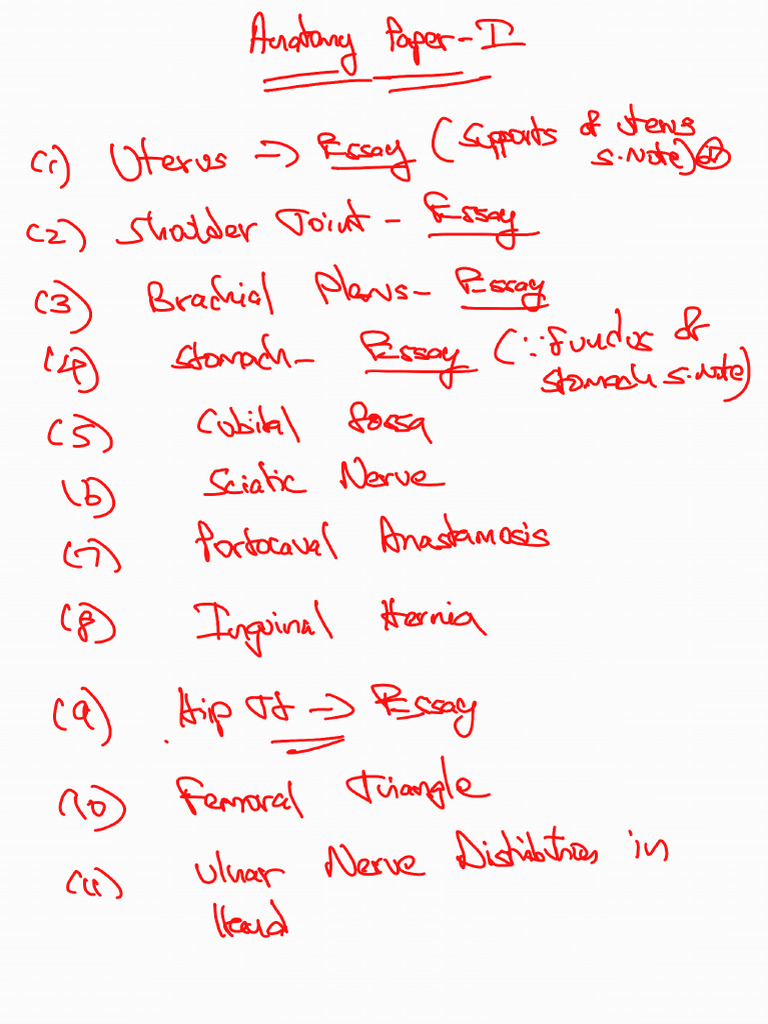 Anatomy Paper-I
(1) Uterus => Essay (Supports of uterus s.Note)
(2) Shoulder Joint - Essay
(3) Brachial Plexus - Essay
(4) Stomach - Essay (∵ fundus of stomach s.Note)
(5) Cubital fossa
(6) Sciatic Nerve
(7) Portocaval Anastamosis
(8) Inguinal Hernia
(9) Hip Jt => Essay
(10) Femoral Triangle
(11) Ulnar Nerve Distribution in
Hand